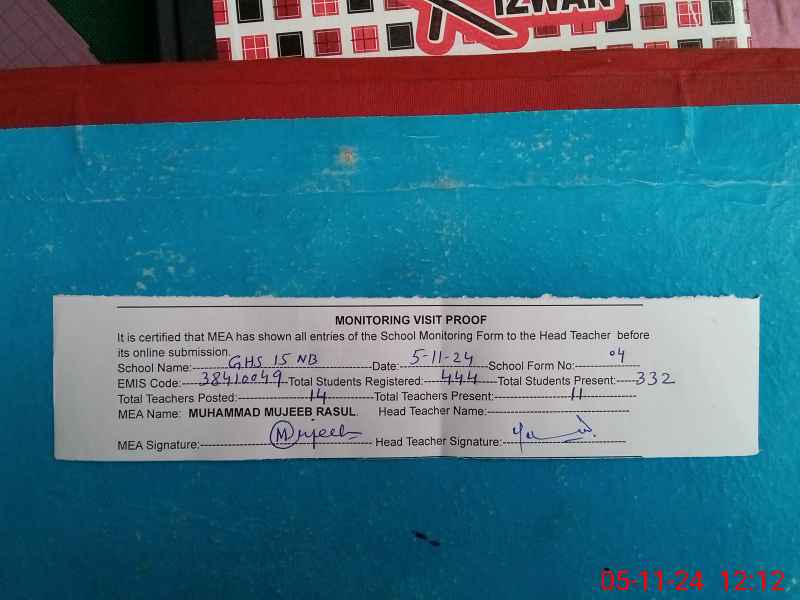 IZWAN
MONITORING VISIT PROOF
It is certified that MEA has shown all entries of the School Monitoring Form to the Head Teacher before
its online submission.
School Name: GHS 15 NB Date: 5-11-24 School Form No: 04
EMIS Code: 38410049 Total Students Registered: 444 Total Students Present: 332
Total Teachers Posted: 14 Total Teachers Present: 11
MEA Name: MUHAMMAD MUJEEB RASUL. Head Teacher Name:
MEA Signature: Mujeeb Head Teacher Signature:
05-11-24 12:12